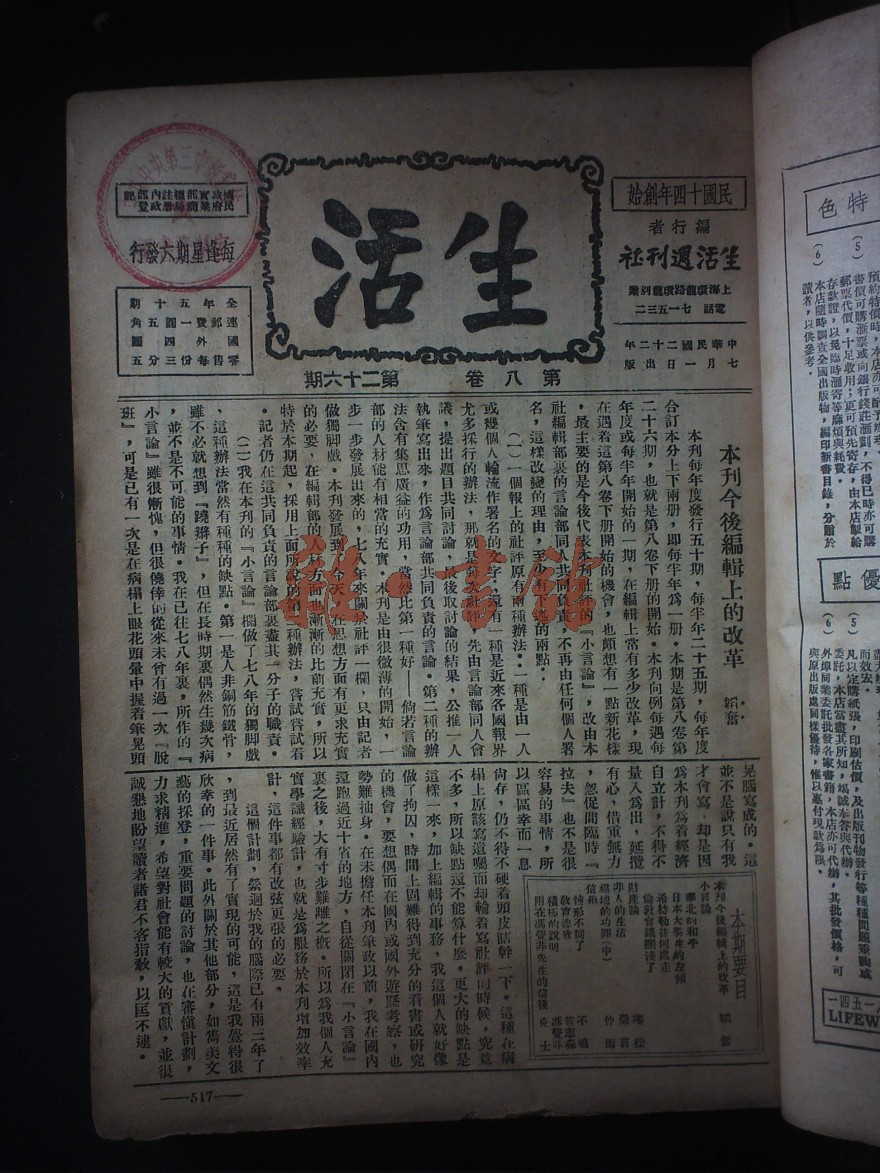 民國十四年創始
編行者
生活週刊社
上海環龍路環龍別業
電話 七一五三二
中華民國二十二年
七月一日出版
生活
國民政府實業部商標局註冊內政部登記
每逢星期六發行
全年五十期
連郵費一圓五角
國外四圓
零售每份三分五
第八卷 第二十六期
本刊今後編輯上的改革
韜奮
本刊每年度發行五十期，每半年二十五期，每年度
合訂本分上下兩册，即每半年爲一册。本期是第八卷第
二十六期，也就是第八卷下册的開始。本刊向例每遇每
年度或每半年開始的一期，在編輯上常有多少改革，現
在遇着這第八卷下册開始的機會，也頗想有一點新花樣
，最主要的是今後代表本刊社評的『小言論』，改由本
社編輯部裏的言論部同人共同負責，不再由任何個人署
名，這樣改變的理由，至少有下述的兩點：
（一）一個報上的社評原有兩種辦法：一種是由一人
或幾個人輪流作署名的文字，還有一種是近來各國報界
尤多採行的辦法，那就是每次社評，先由言論部同人會
議，提出題目共同討論，最後取討論的結果，公推一人
執筆寫出來，作爲言論部共同負責的言論。第二種的辦
法含有集思廣益的功用，當然比第一種好——倘若言論
部的人材能有相當的充實。本刊是由很微薄的開始，一
步一步發展出來的，七八年來關於社評一欄，只由記者
做獨脚戲。本刊發展到了今天，在思想方面有更求充實
的必要，在編輯部的人材方面也漸漸的比前充實，所以
特於本期起，採用上面所說的第二種辦法，嘗試嘗試看
。記者仍在這共同負責的言論部裏盡其一分子的職責。
（二）我在本刊的『小言論』欄做了七八年的獨脚戲
，這種辦法當然有種種的缺點。第一是人非銅筋鐵骨，
雖不必就想到『蹺辮子』，但在長時期裏偶然生幾次病
，並不是不可能的事情。我在已往七八年裏，所作的『
小言論』雖很慚愧，但很僥倖的從來未曾有過一次『脫
班』，可是已有一次是在病榻上眼花頭暈中握着筆晃頭
晃腦寫成的。這
並不是說只有我
才會寫，却是因
爲本刊爲着經濟
自立計，不得不
量入爲出，延攬
有心，借重無力
，忽促間臨時『
拉夫』也不是很
容易的事情，所
以區區幸而一息
尙存，仍不得不硬着頭皮瞎幹一下。這種在病
榻上原該寫遺囑而却輪着寫社評的時候，究竟
不多，所以缺點還不能算什麼，更大的缺點是
這樣一來，加上編輯的事務，我這個人就好像
做了拘囚，時間上固難得到充分的看書或研究
的機會，要想偶而在國內或國外遊歷考察，也
勢難抽身。在未擔任本刊筆政以前，我在國內
還跑過近十省的地方，自從關閉在『小言論』
裏之後，大有寸步難離之概。所以爲我個人充
實學識經驗計，也就是爲服務於本刊增加效率
計，這件事都有改弦更張的必要。
這個計劃，縈迴於我的腦際已有兩三年了
，到最近居然有了實現的可能，這是我覺得很
欣幸的一件事。此外關於其他部分，如雋美文
藝的採登，重要問題的討論，也在審愼計劃，
力求精進，希望對社會能有較大的貢獻，並很
誠懇地盼望讀者諸君不吝指敎，以匡不逮。
本期要目
本刊今後編輯上的改革 韜奮
小言論
華北的和平
日本大學生的左傾
希特勒往何處走
倫敦會議擱淺了
財產論 寒松
非人的生活
租地的功罪（中） 仲雨
信箱
情形不同了 不鳴
積極的說明
附在馮覺非先生的信後
——517——
特色
（5）
（6）
本店隨時調查全國出版物，編印新書目錄，分贈於
讀者，以供參考。
優點
（5）
凡以定購紙張，印刷估價，及出版刊物發行等種種問題垂詢或
委託，本店當盡其所知，竭誠奉答與代辦。
（6）
外埠同業委託批發各家書籍，本店亦可代辦，其批發價格，可
與原出版處同樣優待，惟以惠付現款爲限。
LIFEW
雜書館